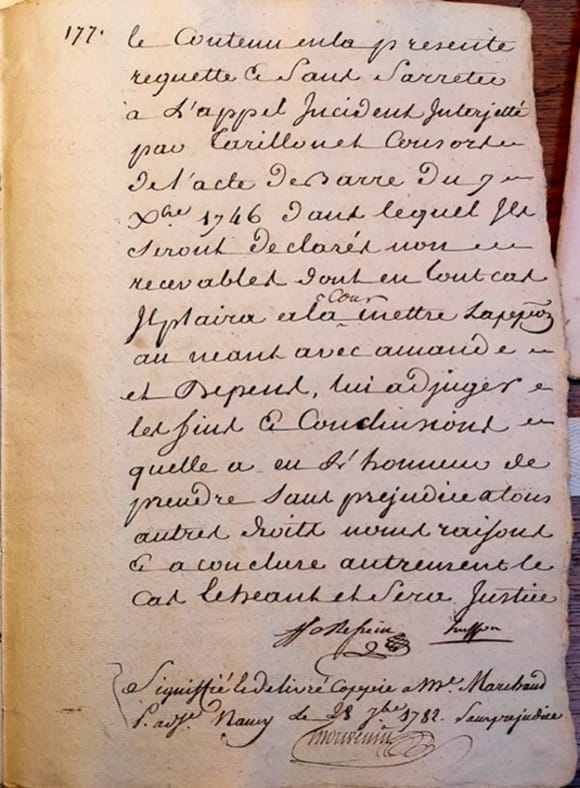 177.
le Contenu en la presente
requette & Sans Sarreter
a L'appel Incident Interjetté
par Carillon et Consorts
de l'acte de Barre Du 7
Xbre 1746 dans lequel Ils
seront declarés non
recevables dont en tout cas
Il plaira a la Cour mettre Lappion
au neant avec amande
et Depens, lui adjuger
les fins & Conclusions
quelle a eu L'honneur de
prendre sans prejudice a tous
autres droits noms raisons
& a conclure autrement le
cas lecheant et Sera Justice
Signiffié & delivré Copie a Me. Marchand
P. adse. Nancy Le 28 1782. Sans prejudice